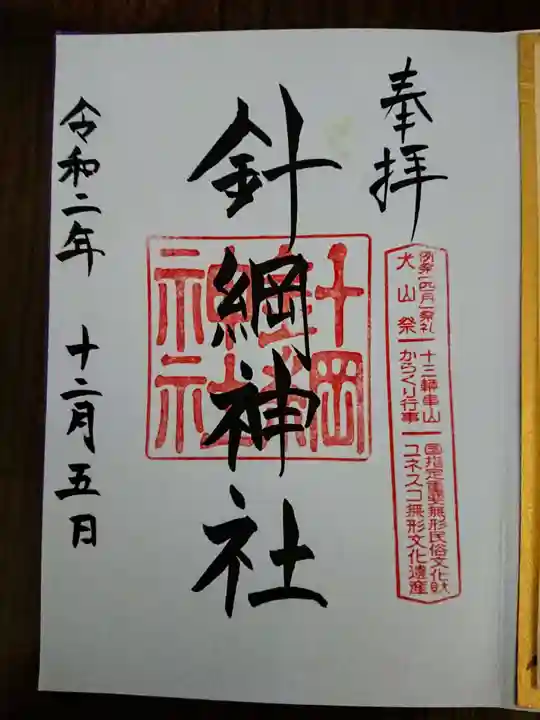 奉拝
例祭(四月)祭礼
犬山祭
十三輌車山
からくり行事
国指定重要無形民俗文化財
ユネスコ無形文化遺産
針綱神社
令和二年 十二月五日